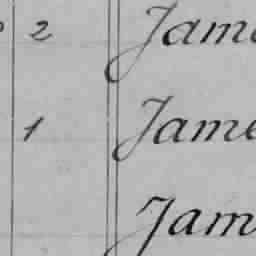 2 Jame
1 Jame
Jam